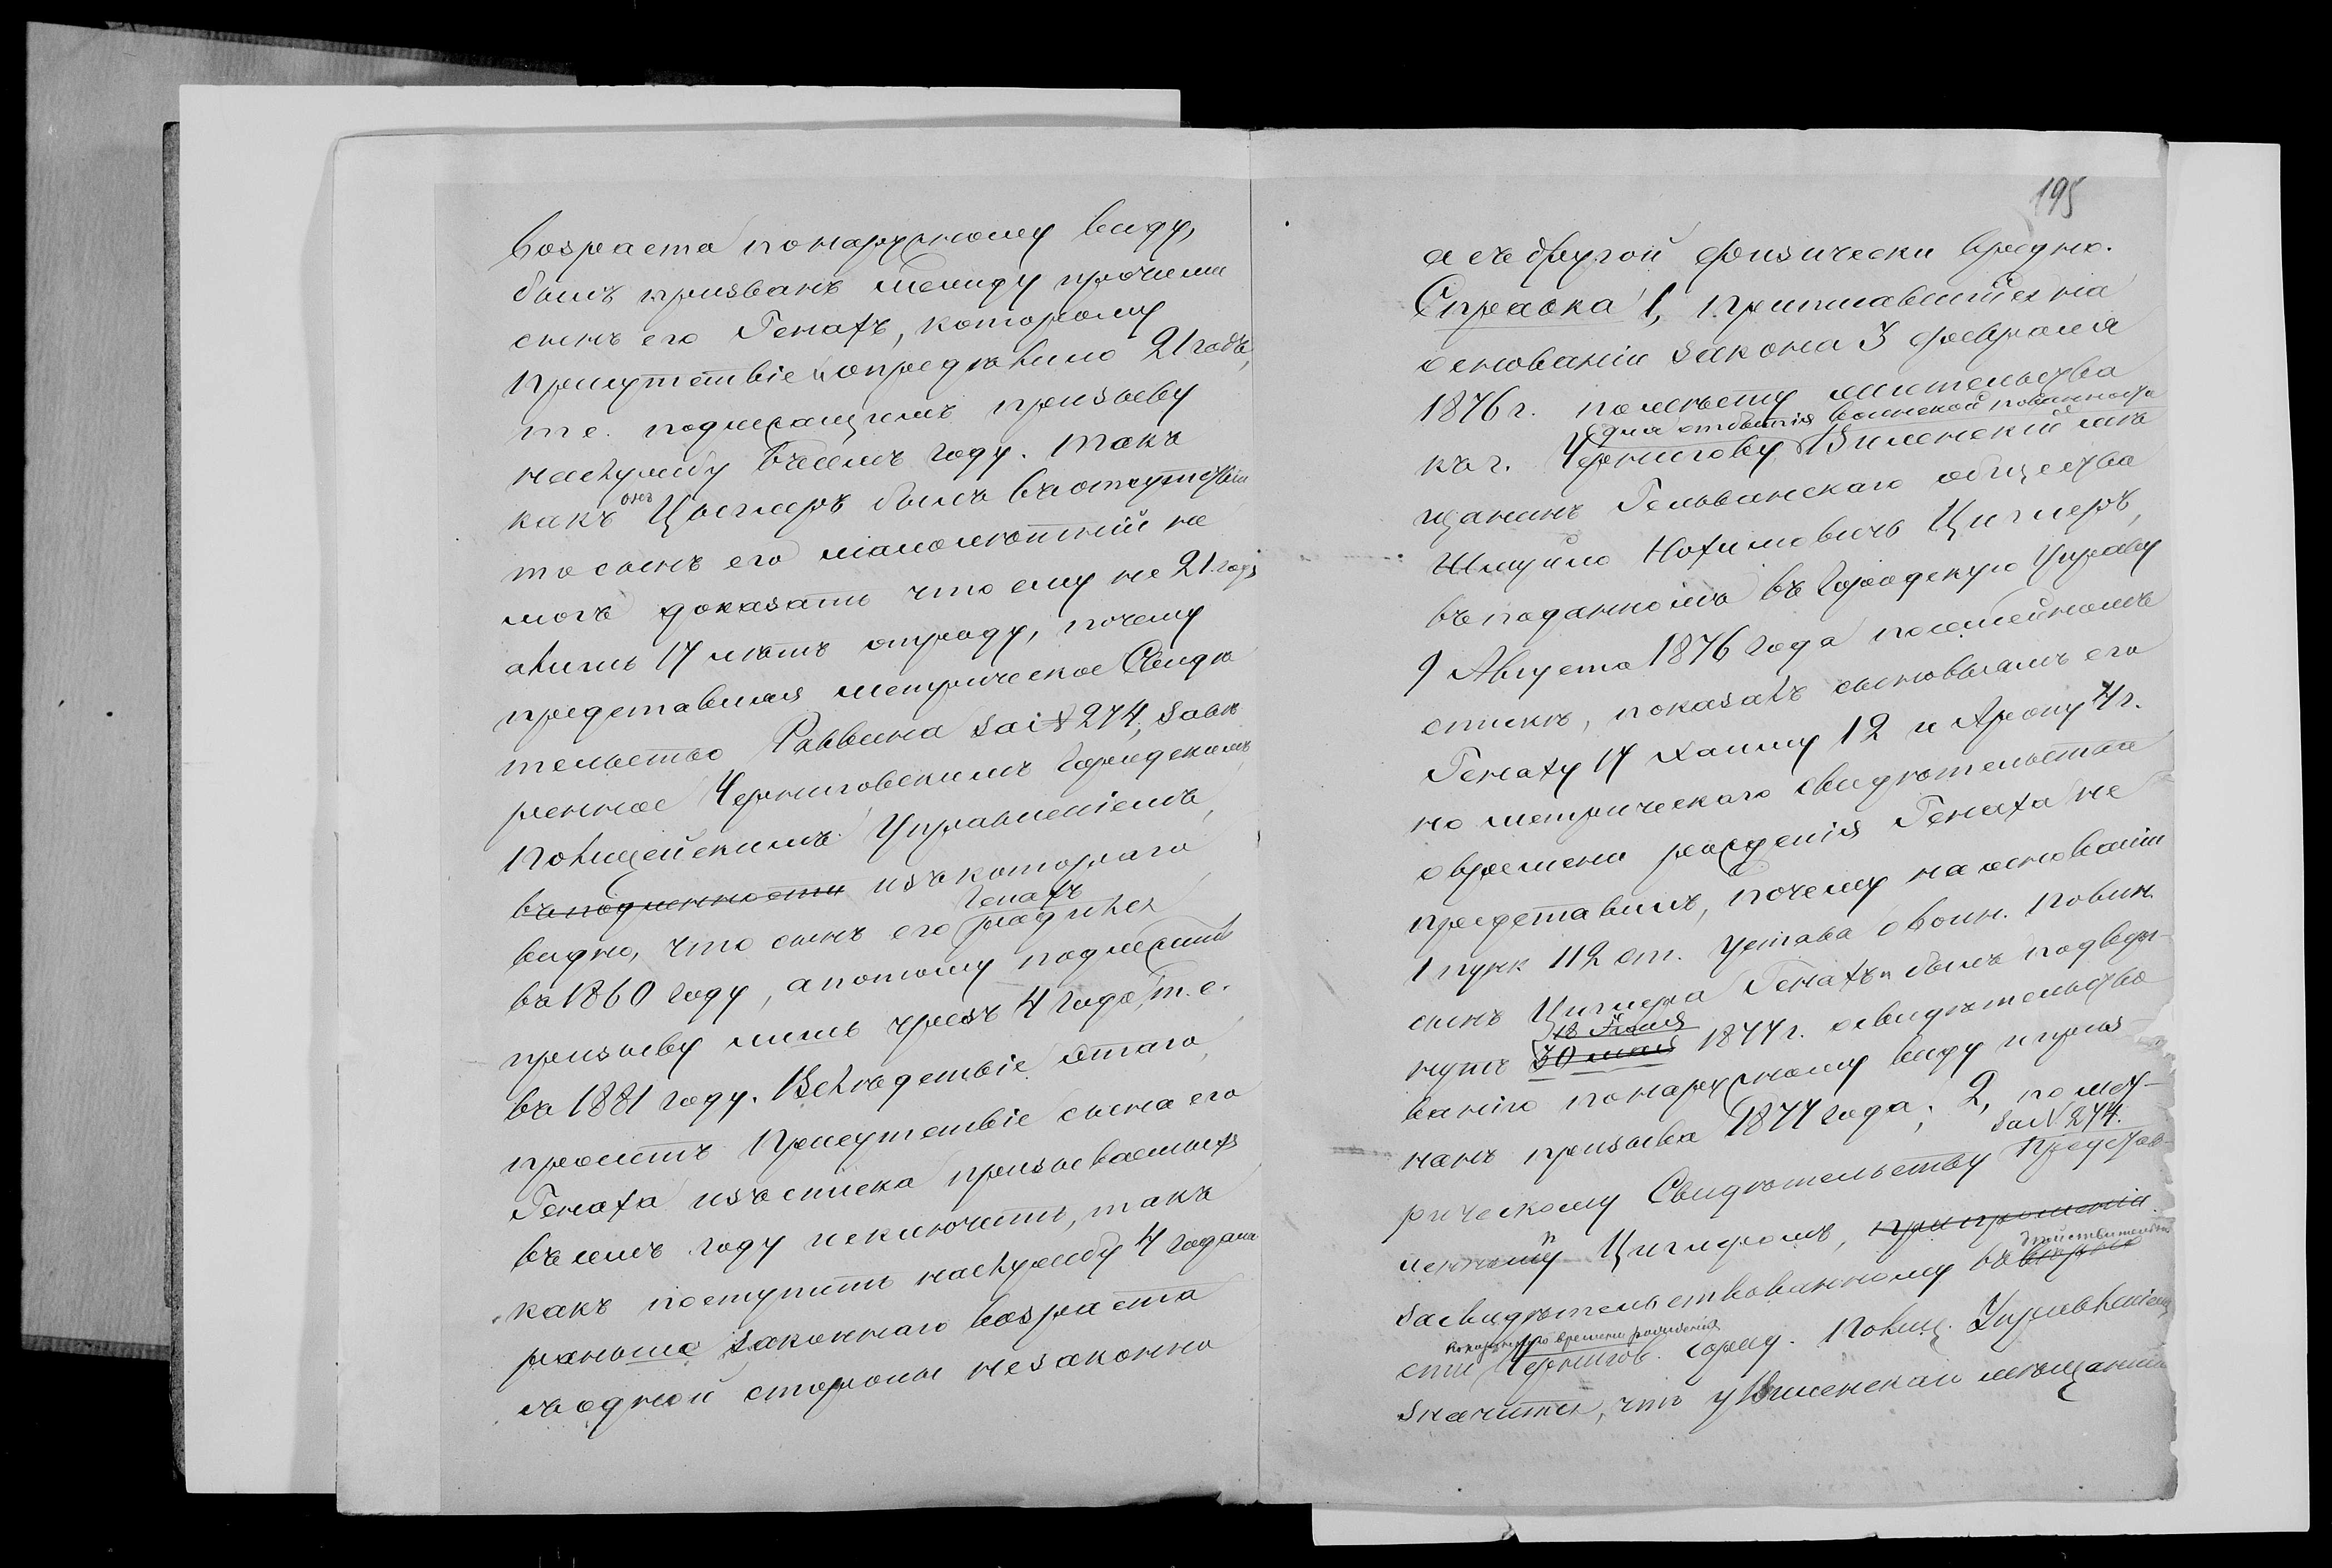 возраста по наружному виду,
былъ призванъ между прочими
сынъ его Генахъ, которому
Присутствіе опредѣлило 21 годъ,
т. е. подлежащимъ призыву
на службу въ семъ году. Такъ
какъ онъ Циглеръ былъ въ отсутствіи
то сынъ его малолѣтній не
могъ доказать что ему не 21 годъ
а лишь 17 лѣтъ отроду, почему
представляя метрическое Свидѣ
тельство Раввина за № 274, завѣ
ренное Черниговскимъ Городскимъ
Полицейскимъ Управленіемъ,
въ подлинности изъ котораго
Генахъ
видно, что сынъ его родился
въ 1860 году, а потому подлежитъ
призыву лишь чрезъ 4 года, т. е.
въ 1881 году. Вслѣдствіе этого,
проситъ Присутствіе сына его
Генаха изъ списка призываемыхъ
въ семъ году исключить, такъ
какъ поступить на службу 4 годами
раньше законнаго возраста
съ одной стороны незаконно
195
а съ другой физически вредно.
Справка 1, Приписавшійся на
основаніи закона 3 февраля
1876 г. по мѣсту жительства
для отбытія воинской повинности
къ г. Чернигову Виленскій мѣ
щанинъ Гельванскаго общества
Шмуйло Нохимовичъ Циглеръ,
въ поданномъ въ Городскую Управу
9 Августа 1876 года посемейномъ
спискѣ, показалъ сыновьямъ его
Генаху 17 Хаиму 12 и Арону 4 г.
но метрическаго свидѣтельства
о времени рожденія Генаха не
представилъ, почему на основаніи
1 пунк 112 ст. Устава о воин. повин.
сынъ Циглера Генахъ былъ подверг-
18 Іюня
нутъ 30 мая 1877 г. освидѣтельство
ванію по наружному виду и приз-
нанъ призыва 1877 года; 2, по мет-
за № 274.
рическому Свидѣтельству представ-
ленному Циглеромъ, при прошеніи
дѣйствительно
засвидѣтельствованному въ вѣрно
касательно времени рожденія
сти Чернигов. город. Полиц. Управленіемъ
значится, что у Виленскаго мѣщанина